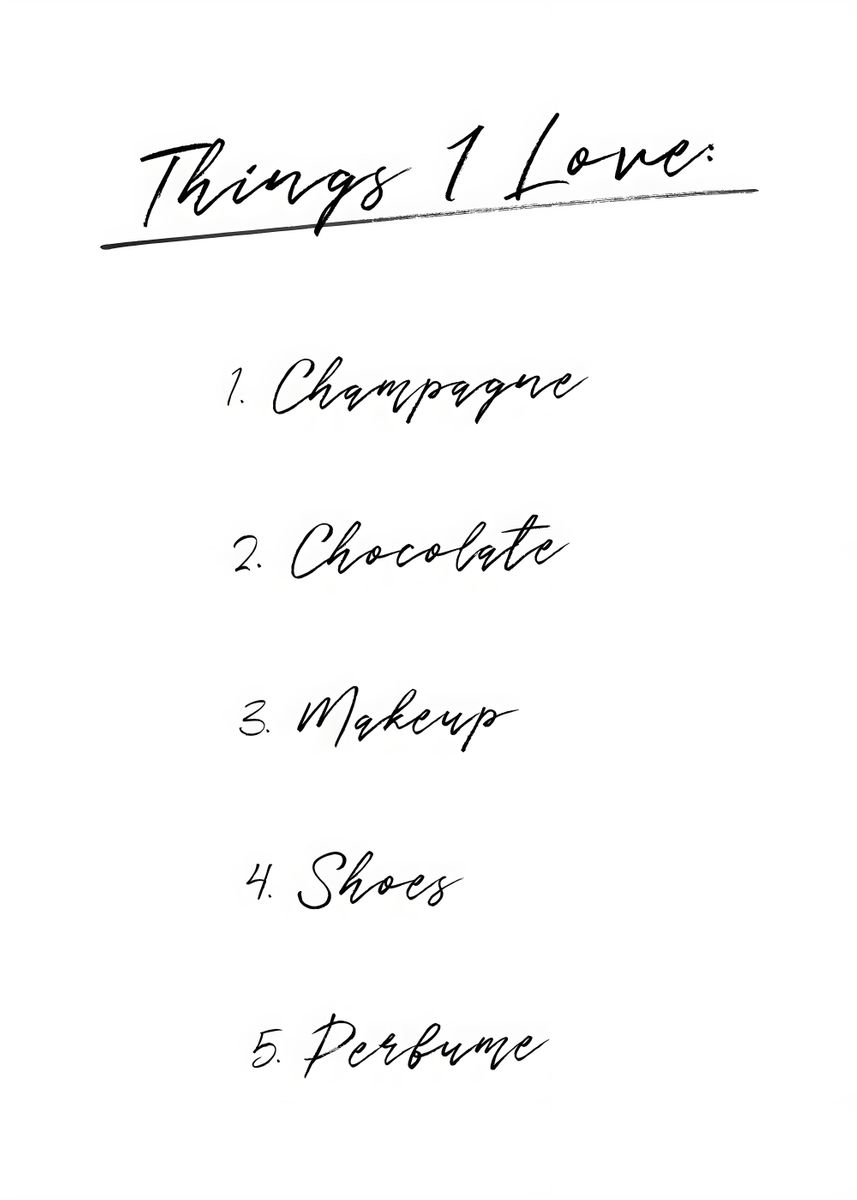 Things I Love:
1. Champagne
2. Chocolate
3. Makeup
4. Shoes
5. Perfume